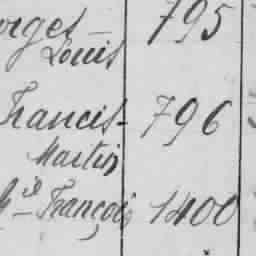 orget 795
Louis
Francis- 796
Martin
François 1400